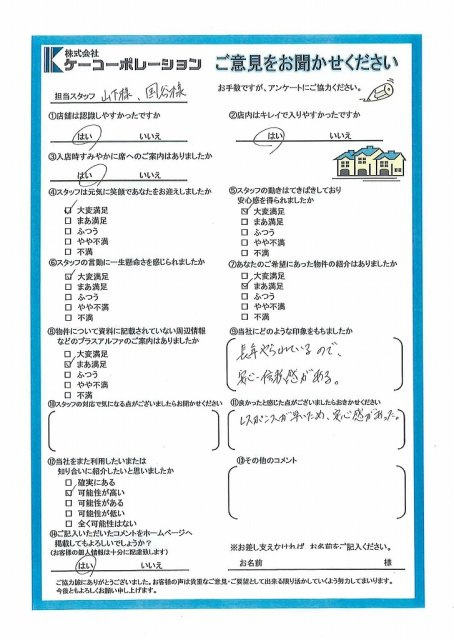 株式会社
ケーコーポレーション
ご意見をお聞かせください
担当スタッフ 山下様、国谷様
お手数ですが、アンケートにご協力ください。
①店舗は認識しやすかったですか
はい いいえ
②店内はキレイで入りやすかったですか
はい いいえ
③入店時すみやかに席へのご案内はありましたか
はい いいえ
④スタッフは元気に笑顔であなたをお迎えしましたか
大変満足
まあ満足
ふつう
やや不満
不満
⑤スタッフの動きはてきぱきしており
安心感を得られましたか
大変満足
まあ満足
ふつう
やや不満
不満
⑥スタッフの言動に一生懸命さを感じられましたか
大変満足
まあ満足
ふつう
やや不満
不満
⑦あなたのご希望にあった物件の紹介はありましたか
大変満足
まあ満足
ふつう
やや不満
不満
⑧物件について資料に記載されていない周辺情報
などのプラスアルファのご案内はありましたか
大変満足
まあ満足
ふつう
やや不満
不満
⑨当社にどのような印象をもちましたか
長年やられているので、
安心・信頼感がある。
⑩スタッフの対応で気になる点がございましたらお聞かせください
⑪良かったと感じた点がございましたらおきかせください
レスポンスが早いため、安心感があった。
⑫当社をまた利用したいまたは
知り合いに紹介したいと思いましたか
確実にある
可能性が高い
可能性がある
可能性が低い
全く可能性はない
⑬その他のコメント
⑭ご記入いただいたコメントをホームページへ
掲載してもよろしいでしょうか？
(お客様の個人情報は十分に配慮致します)
はい いいえ
※お差し支えなければ、お名前をご記入ください。
お名前 様
ご協力誠にありがとうございました。お客様の声は貴重なご意見・ご要望として出来る限り活かしていくよう努力してまいります。
今後ともよろしくお願い申し上げます。